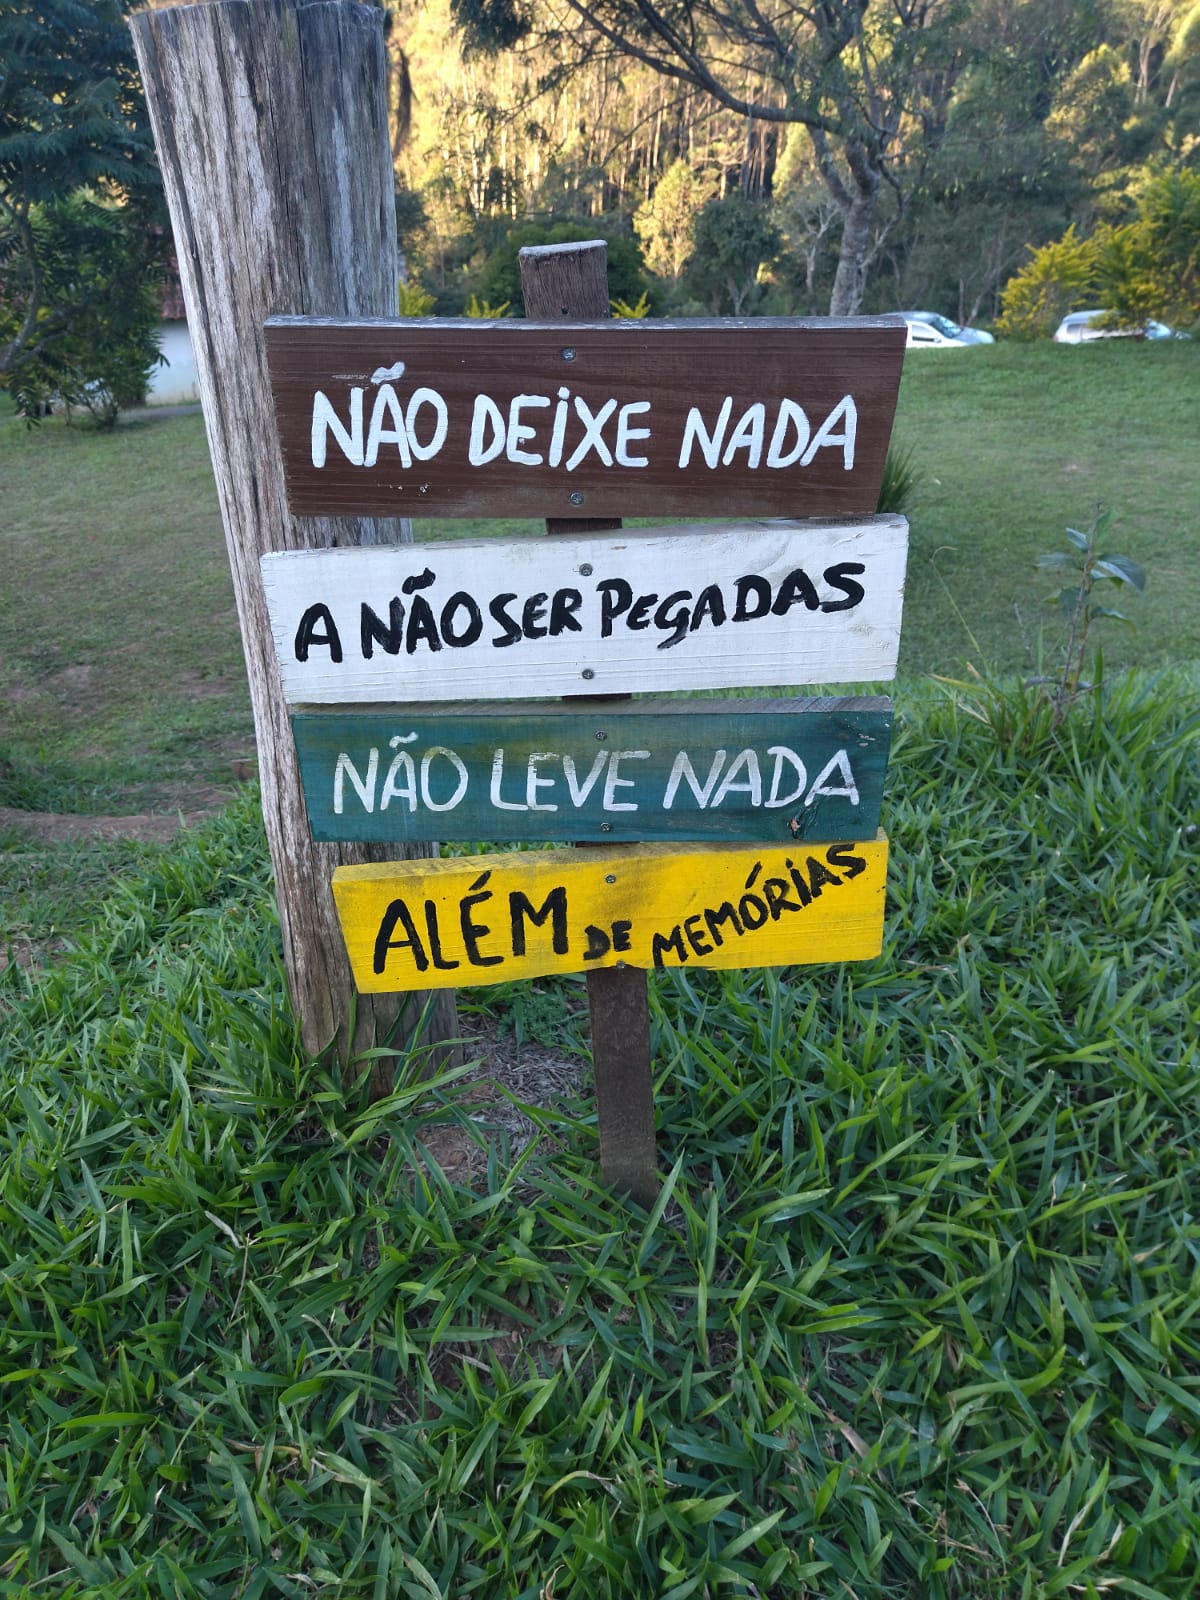 NÃO DEIXE NADA
A NÃO SER PEGADAS
NÃO LEVE NADA
ALÉM DE MEMÓRIAS